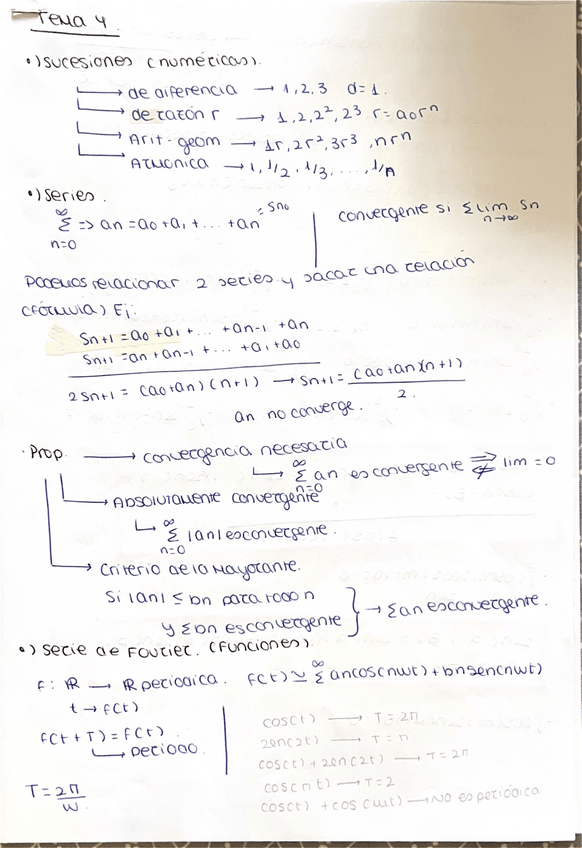 Tema 4.
•) Sucesiones (numéricas).
de diferencia → 1,2,3 d=1.
de razón r → 1,2,2²,2³ r=a₀rⁿ
Arit-geom → 1r,2r²,3r³,nrⁿ
Armónica → 1,1/2,1/3,...,1/n
•) Series.
∞ Σ n=0 => an = a₀+a₁+...+an = Sn₀
convergente si Σ lim n→∞ Sn
Podemos relacionar 2 series y sacar una relación
(fórmula) Ej:
Sn+1 = a₀+a₁+...+an-1+an
Sn+1 = an+an-1+...+a₁+a₀
2Sn+1 = (a₀+an)(n+1) → Sn+1 = (a₀+an)(n+1)
2.
an no converge.
·Prop. → convergencia necesaria
∞ Σ n=0 an es convergente ⇒ ⇍ lim = 0
→ Absolutamente convergente
∞ Σ n=0 |an| es convergente.
→ Criterio de la Mayorante.
Si |an| ≤ bn para todo n
y Σbn es convergente } → Σan es convergente.
•) Serie de Fourier. (Funciones).
f: ℝ → ℝ periódica. f(t) ≃ ∞ Σ ancos(nwt)+bnsen(nwt)
t → f(t)
f(t+T) = f(t)
periodo.
T = 2π
w
cos(t) → T=2π
sen(2t) → T=π
cos(t)+sen(2t) → T=2π
cos(πt) → T=2
cos(t)+cos(πt) → No es periódica